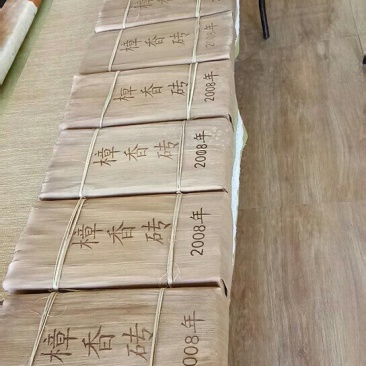 樟香砖
樟香砖 2008年
樟香砖 2008年
樟香砖 2008年
樟香砖 2008年
樟香砖 2008年